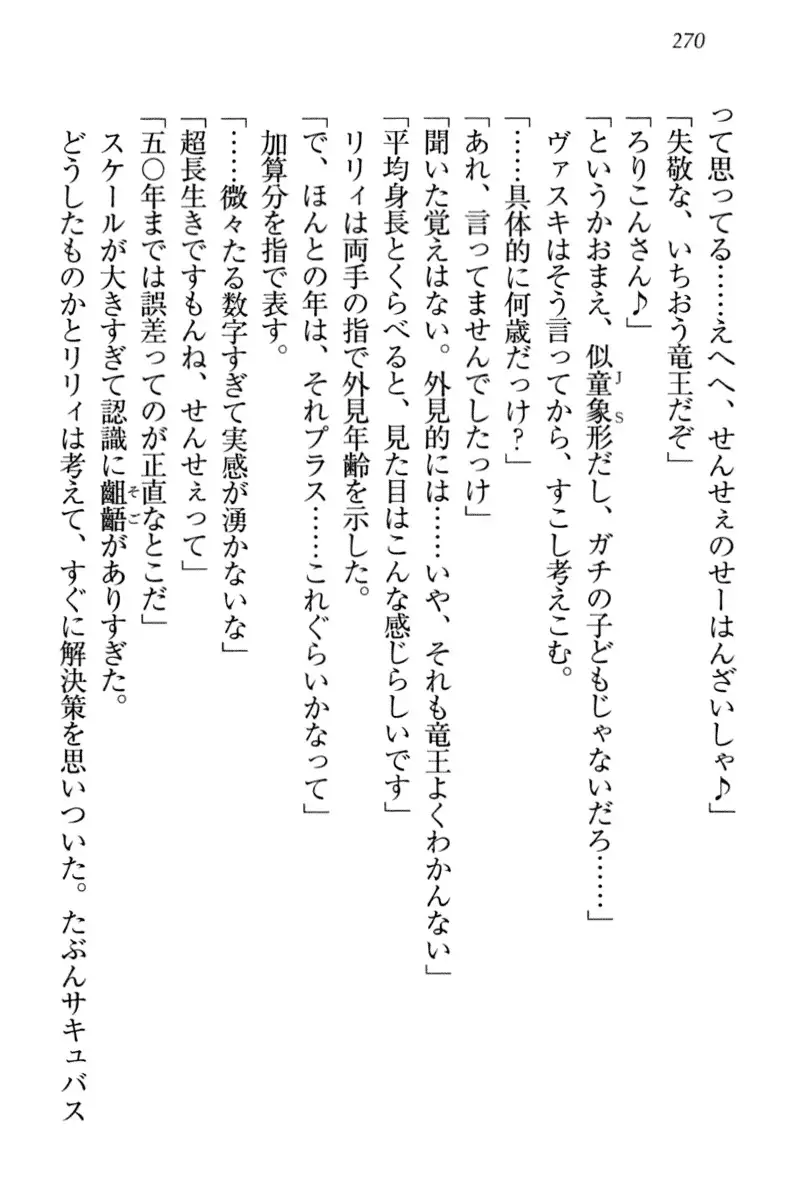 270
って思ってる……えへへ、せんせぇのせーはんざいしゃ♪」
「失敬な、いちおう竜王だぞ」
「ろりこんさん♪」
「というかおまえ、似童象形だし、ガチの子どもじゃないだろ……」
JS
ヴァスキはそう言ってから、すこし考えこむ。
「……具体的に何歳だっけ？」
「あれ、言ってませんでしたっけ」
「聞いた覚えはない。外見的には……いや、それも竜王よくわかんない」
「平均身長とくらべると、見た目はこんな感じらしいです」
リリィは両手の指で外見年齢を示した。
「で、ほんとの年は、それプラス……これぐらいかなって」
加算分を指で表す。
「……微々たる数字すぎて実感が湧かないな」
「超長生きですもんね、せんせぇって」
「五〇年までは誤差ってのが正直なとこだ」
スケールが大きすぎて認識に齟齬がありすぎた。
そご
どうしたものかとリリィは考えて、すぐに解決策を思いついた。たぶんサキュバス